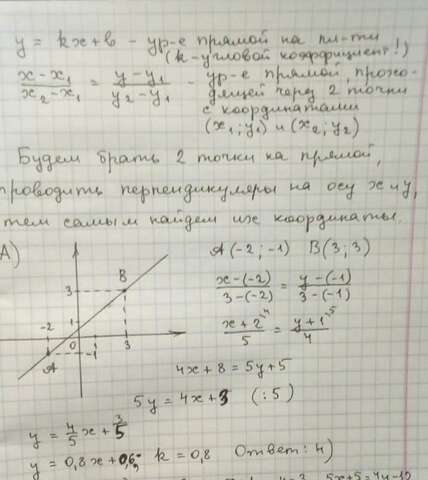 y = kx+b - ур-е прямой на пл-ти
(k-угловой коэффициент!)
(x-x₁)/(x₂-x₁) = (y-y₁)/(y₂-y₁) - ур-е прямой, прохо-
дящей через 2 точки
с координатами
(x₁; y₁) и (x₂; y₂)
Будем брать 2 точки на прямой,
проводить перпендикуляры на осу x и y,
тем самым найдем их координаты.
А)
A(-2; -1) B(3; 3)
B
3
-2
1
A
-1
3
(x-(-2))/(3-(-2)) = (y-(-1))/(3-(-1))
(x+2)/5 = (y+1)/4
4x+8 = 5y+5
5y = 4x+3 (:5)
y = 4/5 x + 3/5
y = 0,8x+0,6; k = 0,8 Ответ: 4)